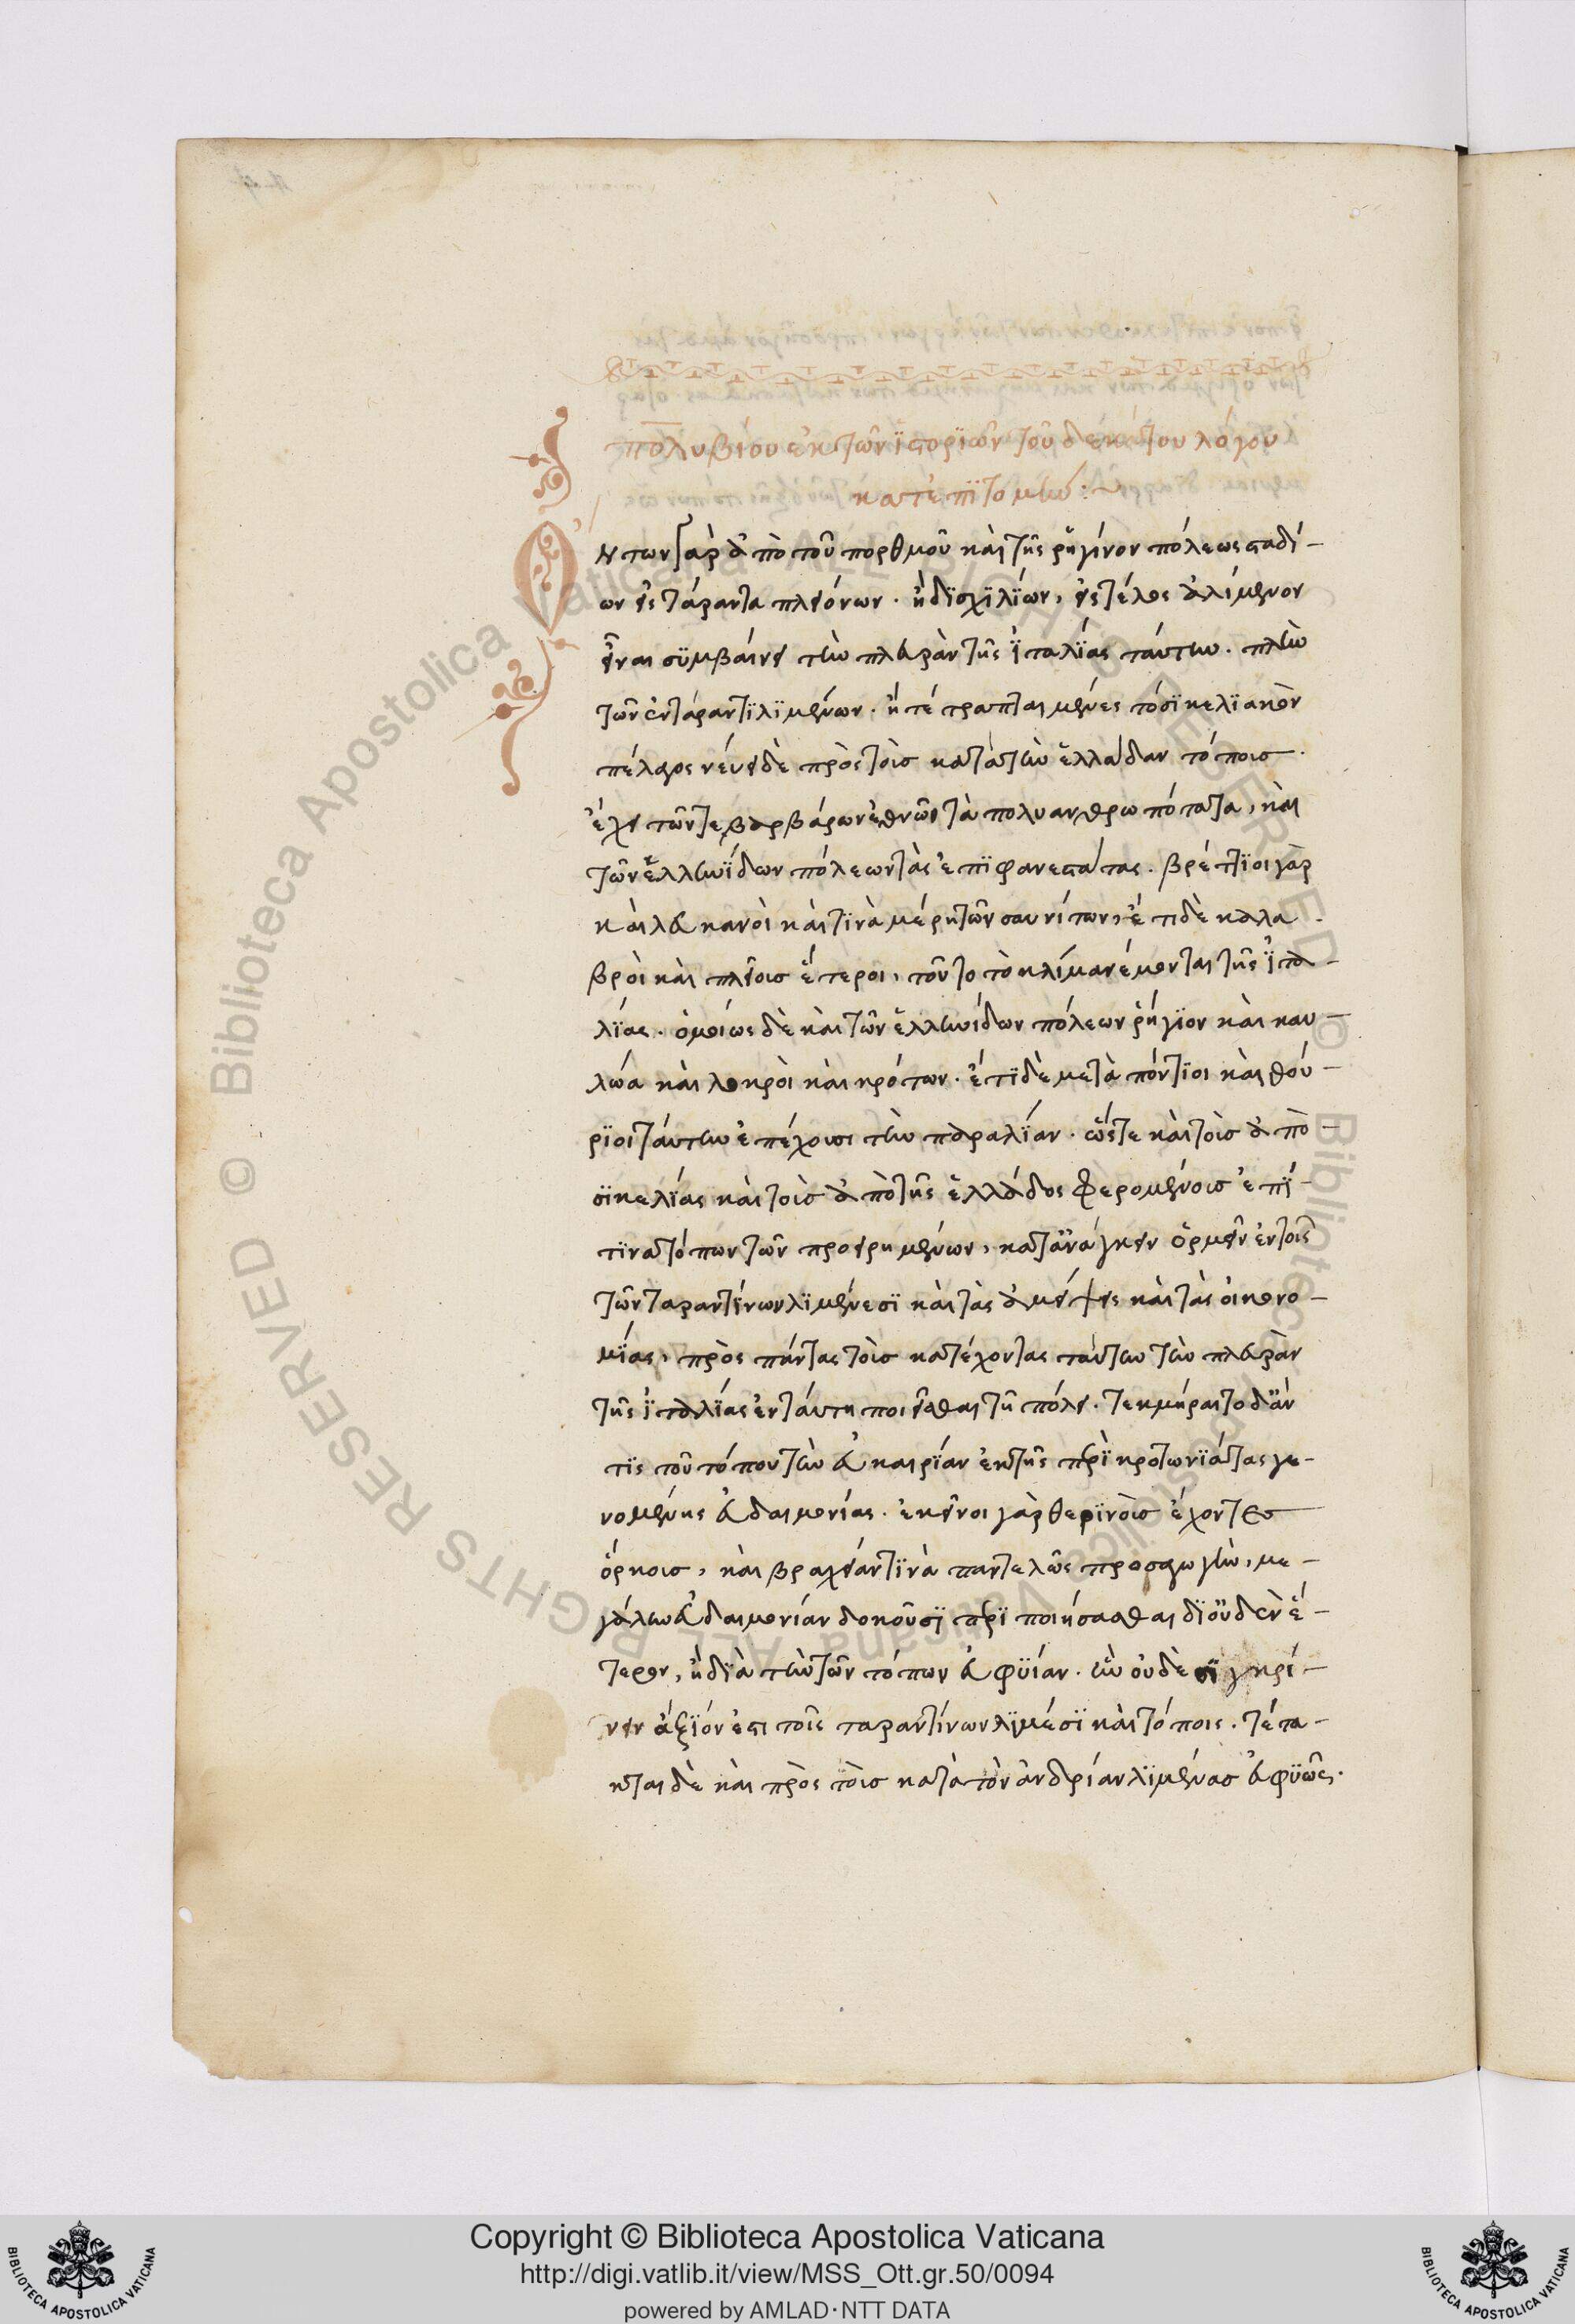 πολυβίου ἐκ τῶν ἱστορϊῶν τοῦ δεκάτου λόγου
κατ' ἐπϊτομήν :~
Οντων γὰρ ἀπὸ τοῦ πορθμοῦ καὶ τῆς ῥηγίνον πόλεως σταδί-
ων εἰς τάραντα πλειόνων · ἢ δϊσχϊλϊων, εἰς τέλος ἀλίμενον
εἶναι σϋμβαίνει τὴν πλευρὰν τῆς ϊταλΐας ταύτην · πλὴν
τῶν ἐν τάραντϊ λϊμένων · ἣ τέτραπται μὲν ἐς τὸ σϊκελϊακὸν
πέλαγος νεύει δὲ πρὸς τοῖσ κατὰ τὴν ἑλλάδαν τόποισ ·
ἔχει τῶν τε βαρβάρων ἐθνῶν τὰ πολυανθρωπότατα, καὶ
τῶν ἑλληνΐδων πόλεων τὰς ἐπϊφανεστάτας · βρέττϊοι γὰρ
καὶ λευκανοὶ καὶ τϊνὰ μέρη τῶν σαυνίτων, ἔτι δὲ καλα
βροὶ καὶ πλείοισ ἕτεροι, τοῦτο τὸ κλίμα νέμονται τῆς ϊτα-
λΐας · ὁμοίως δὲ καὶ τῶν ἑλληνίδων πόλεων ῥήγϊον καὶ καυ-
λώα καὶ λοκροὶ καὶ κρότων · ἔτϊ δὲ μετὰ πόντϊοι καὶ θού-
ρϊοι ταύτην ἐπέχουσι τὴν παραλΐαν · ὥστε καὶ τοῖσ ἀπὸ-
σϊκελΐας καὶ τοῖσ ἀπὸ τῆς ἑλλάδος φερομένοισ ἐπΐ-
τϊνα τόπων τῶν προειρημένων, κατ' ἀνάγκειν ὁρμεῖν ἐν τοῖς
τῶν ταραντΐνων λϊμένεσϊ καὶ τὰς ἀμείψεις καὶ τὰς οἰκονο-
μΐας, πρὸς πάντας τοῖσ κατέχοντας ταύτην τὴν πλευρὰν
τῆς ϊταλΐας ἐν ταύτη ποιεῖσθαι τῆ πόλει · τεκμήραιτο δ' ἄν
τϊς τοῦ τόπου τὴν εὐκαιρΐαν ἐκ τῆς περὶ κροτωνϊάτας γε-
νομένης εὐδαιμονίας · ἐκεῖνοι γὰρ θερϊνοῖσ ἔχοντεσ
ὅρκοισ, καὶ βραχεῖάν τϊνὰ παντελῶς προσαγωγὴν, με-
γάλην εὐδαιμονίαν δοκοῦσϊ περὶ ποιήσασθαι δϊ' οὐδὲν ἕ-
τερον, ἢ δϊὰ τὴν τῶν τόπων εὐφϋίαν · ἣν οὐδὲ σϊγκρί-
νειν ἄξϊόν ἐστι τοῖς ταραντίνων λϊμέσϊ καὶ τόποις · τέτα-
κται δὲ καὶ πρὸς τοῖσ κατὰ τὸν ἀνδρίαν λϊμένασ εὐφϋῶς ·
Copyright © Biblioteca Apostolica Vaticana
http://digi.vatlib.it/view/MSS_Ott.gr.50/0094
powered by AMLAD·NTT DATA